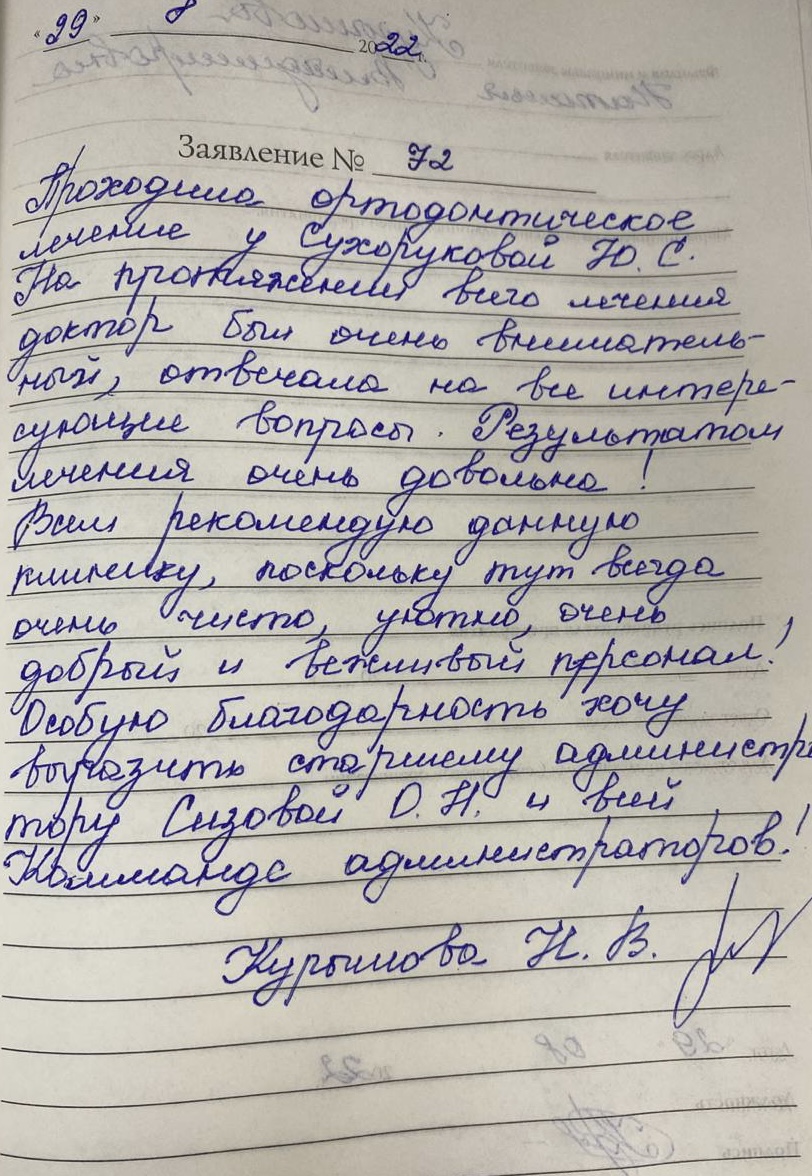 «29» 8 2022г.
Заявление № 72
Проходила ортодонтическое
лечение у Сухоруковой Ю. С.
На протяжении всего лечения
доктор был очень вниматель-
ный, отвечала на все интере-
сующие вопросы. Результатом
лечения очень довольна!
Всем рекомендую данную
клинику, поскольку тут всегда
очень чисто, уютно, очень
добрый и вежливый персонал!
Особую благодарность хочу
выразить старшему администра
тору Сизовой О. Н. и всей
Комманде администраторов!
Курышова Н. В.